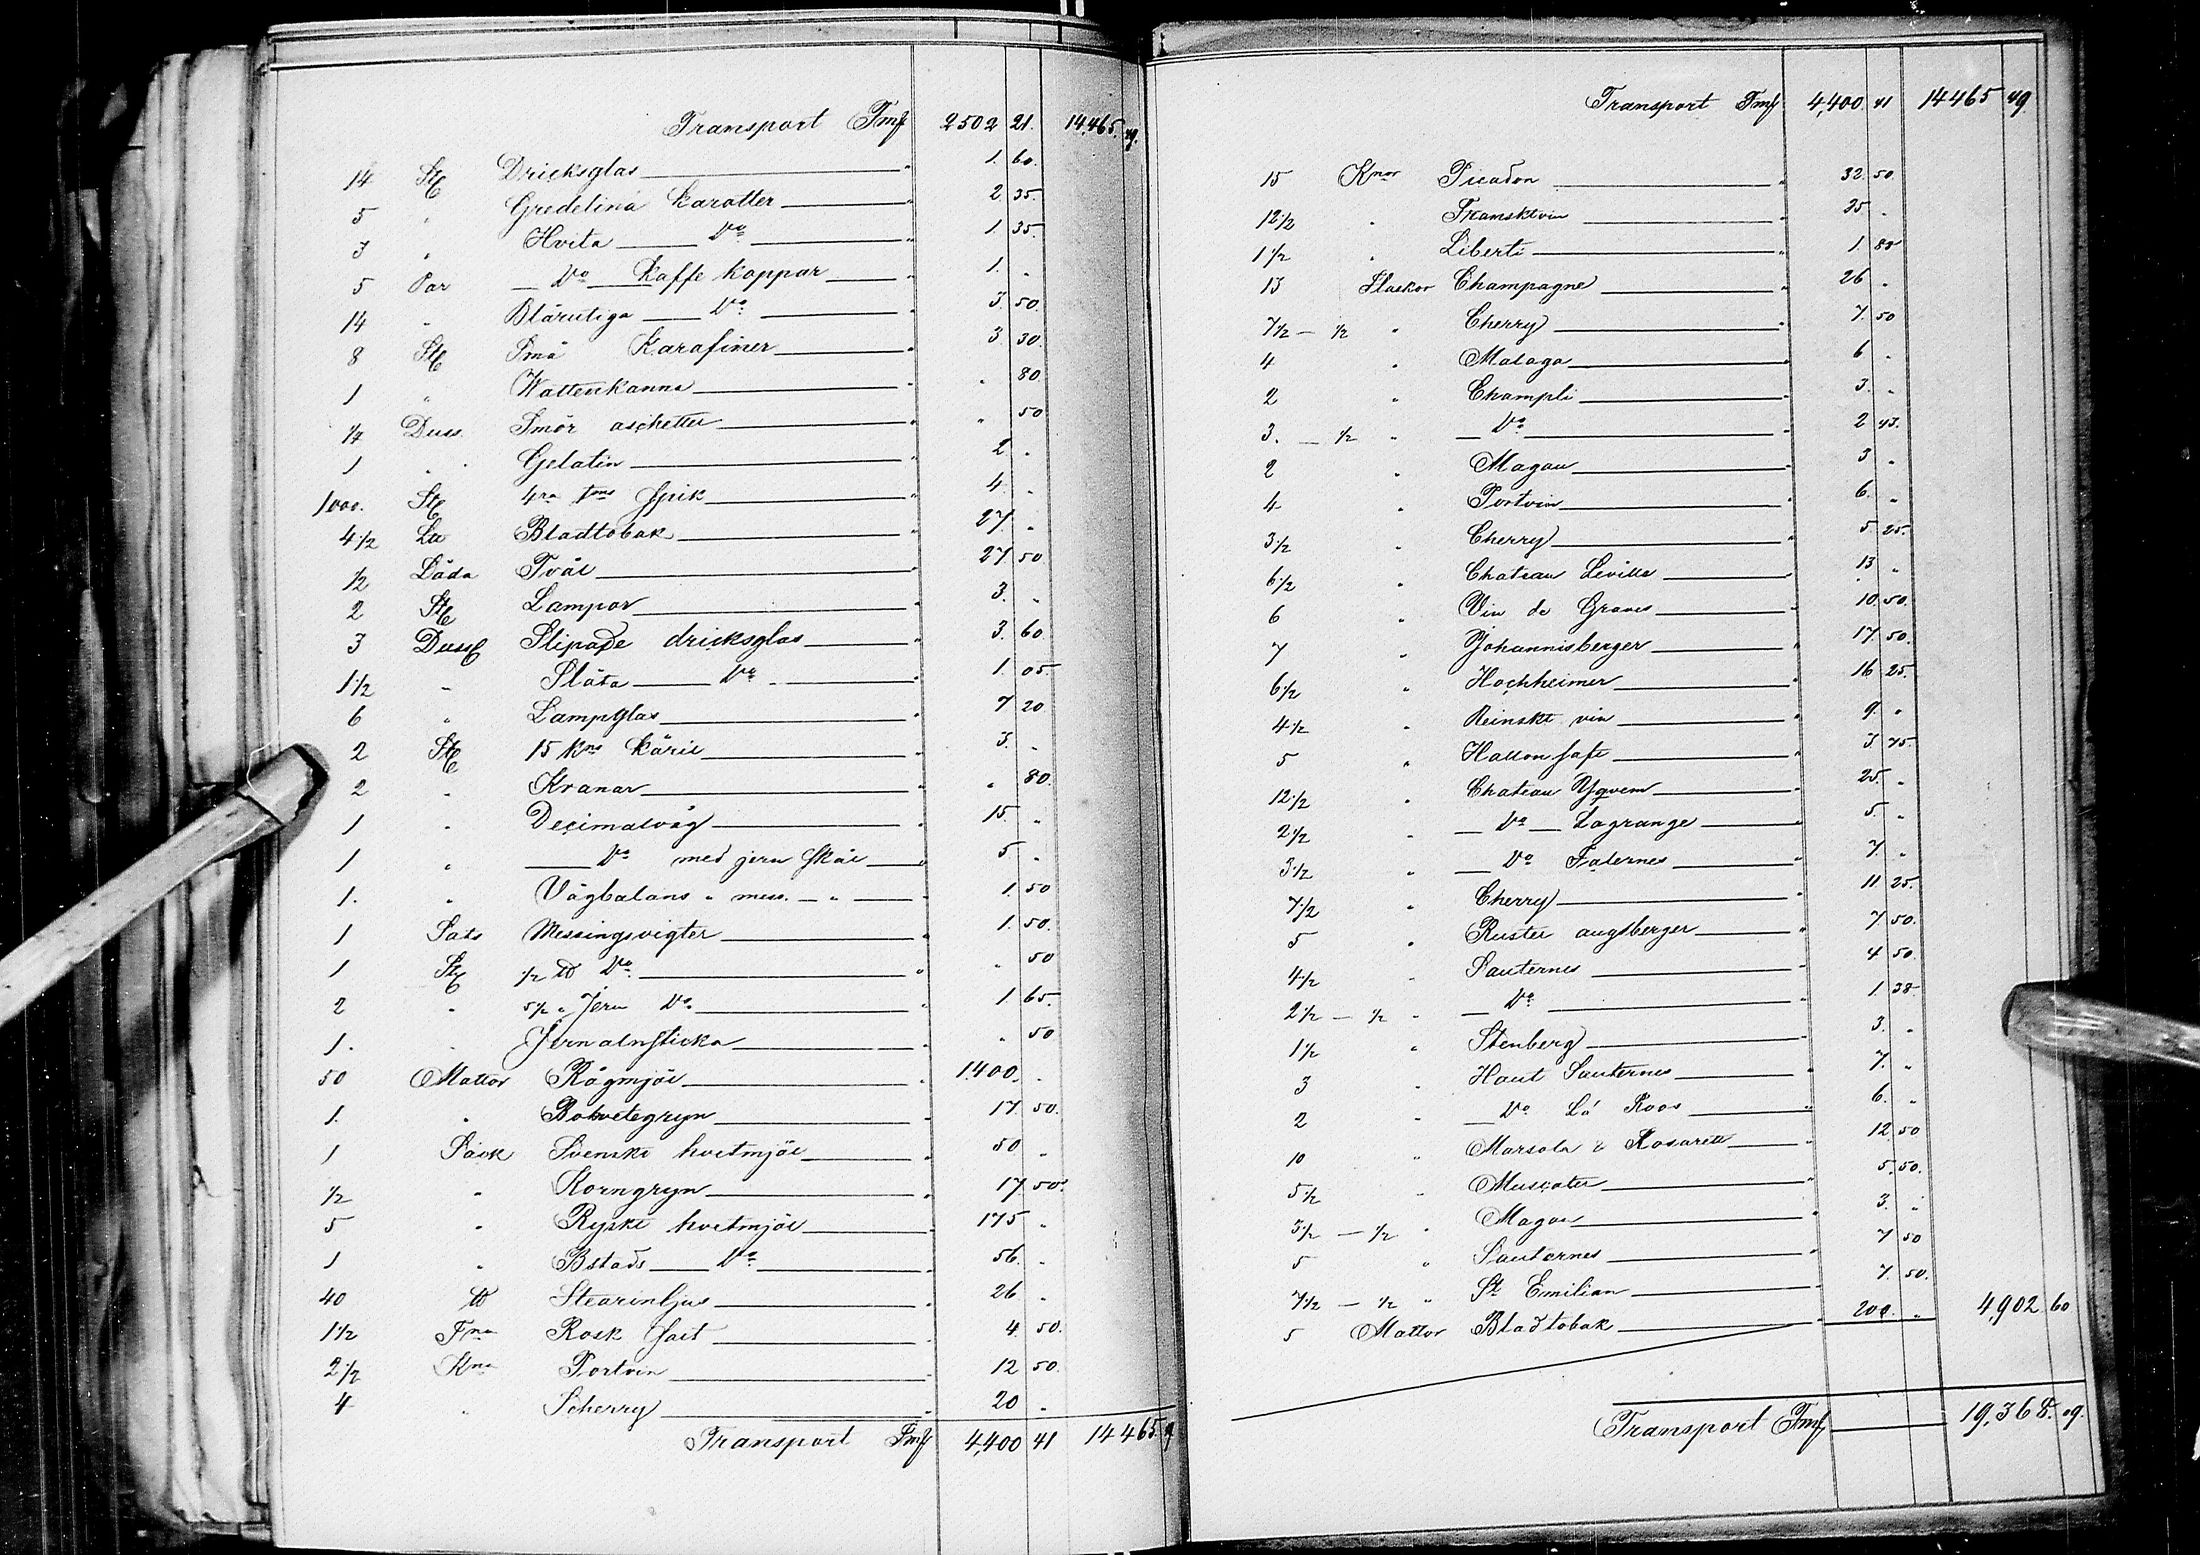 Transport Fmk 2502 21. 14,465. 49.
14 St Dricksglas " 1. 60.
5 " Gredelina Karatter " 2 35.
3 " Hvita Do " 1 35.
5 Par Do Kaffe koppar " 1. "
14 " Blårutiga Do " 3. 50.
8 St Små Karafiner " 3 30.
1 " Wattenkanna " " 80
1/4 Duss. Smör aschetter " " 50
1 " Gelatin " 2 "
1000. St 4ra tms spik " 4 "
4 1/2 Lu Bladtobak " 27. "
1/2 Låda Tvål " 27 50
2 St Lampor " 3. "
3 Duss Slipade dricksglas " 3. 60
1 1/2 " Släta Do " 1. 05.
6 " Lampglas " 7 20
2 St 15 kns Käril " 3. "
2 " Kranar " " 80.
1 " Decimalvåg " 15. "
1 " Do med jern skål " 5 "
1. " Vågbalans " mess. " " 1. 50
1 Sats Messingsvigter " 1. 50.
1 St 1/2 ℔ Do " " 50
2 " 5/2 " Jern Do " 1. 65.
1. " Jernalnsticka " " 50
50 Mattor Rågmjöl " 1400. "
1. " Bohvetegryn " 17 50.
1 Säck Svenskt hvetmjöl " 50 "
1/2 " Korngryn " 17 50.
5 " Ryskt hvetmjöl " 175 "
1 " Bstads Do " 56. "
40 ℔ Stearinljus " 26 "
1 1/2 Fna Rosk salt " 4. 50.
2 1/2 Kna Portvin " 12 50.
4 " Scherry " 20 "
Transport Fmk 4,400 41 14465. 49
Transport Fmk 4,400. 41 14465 49.
15 Knor Picadon " 32. 50.
12 1/2 " Fransktvin " 25 "
1 1/2 " Liberti " 1. 80
13 Flaskor Champagne " 26 "
7 1/2 — 1/2 " Cherry " 7. 50
4 " Malaga " 6 "
2 " Champli " 3. "
3. — 1/2 " Do " 2 45.
2 " Magau " 3 "
4 " Portvin " 6. "
3 1/2 " Cherry " 5. 25.
6 1/2 " Chateau Leville " 13 "
6 " Vin de Graves " 10. 50.
7 " Johannisberger " 17. 50.
6 1/2 " Hochheimer " 16 25.
4 1/2 " Reinskt vin " 9. "
5 " Hallon saft " 3. 75.
12 1/2 " Chateau Yqvem " 25. "
2 1/2 " Do Lagrange " 5. "
3 1/2 " Do Falernes " 7. "
7 1/2 " Cherry " 11 25.
5 " Ruster augsberger " 7. 50.
4 1/2 " Sauternes " 4 50.
2 1/2 — 1/2 " Do " 1. 38.
1 1/2 " Stenberg " 3. "
3 " Haut Sauternes " 7. "
2 " Do La Roos " 6. "
10 " Marsala & Rosarett " 12. 50
5 1/2 " Muscatel " 5. 50.
3 1/2 — 1/2 " Magau " 3. "
5 " Sauternes " 7 50
7 1/2 — 1/2 " St Emilian " 7. 50.
5 Mattor Bladtobak " 200. " 4,902 60
Transport Fmk 19,368. 09.